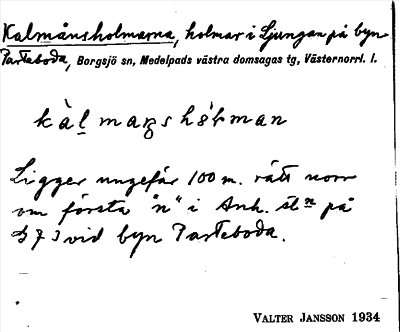 Kalmånsholmarna, holmar i Ljungan på byn
Parteboda, Borgsjö sn, Medelpads västra domsagas tg, Västernorrl. l.
Ligger ungefär 100 m. rätt norr
om första "n" i Anh. stn på
§ 73 vid byn Parteboda.
VALTER JANSSON 1934